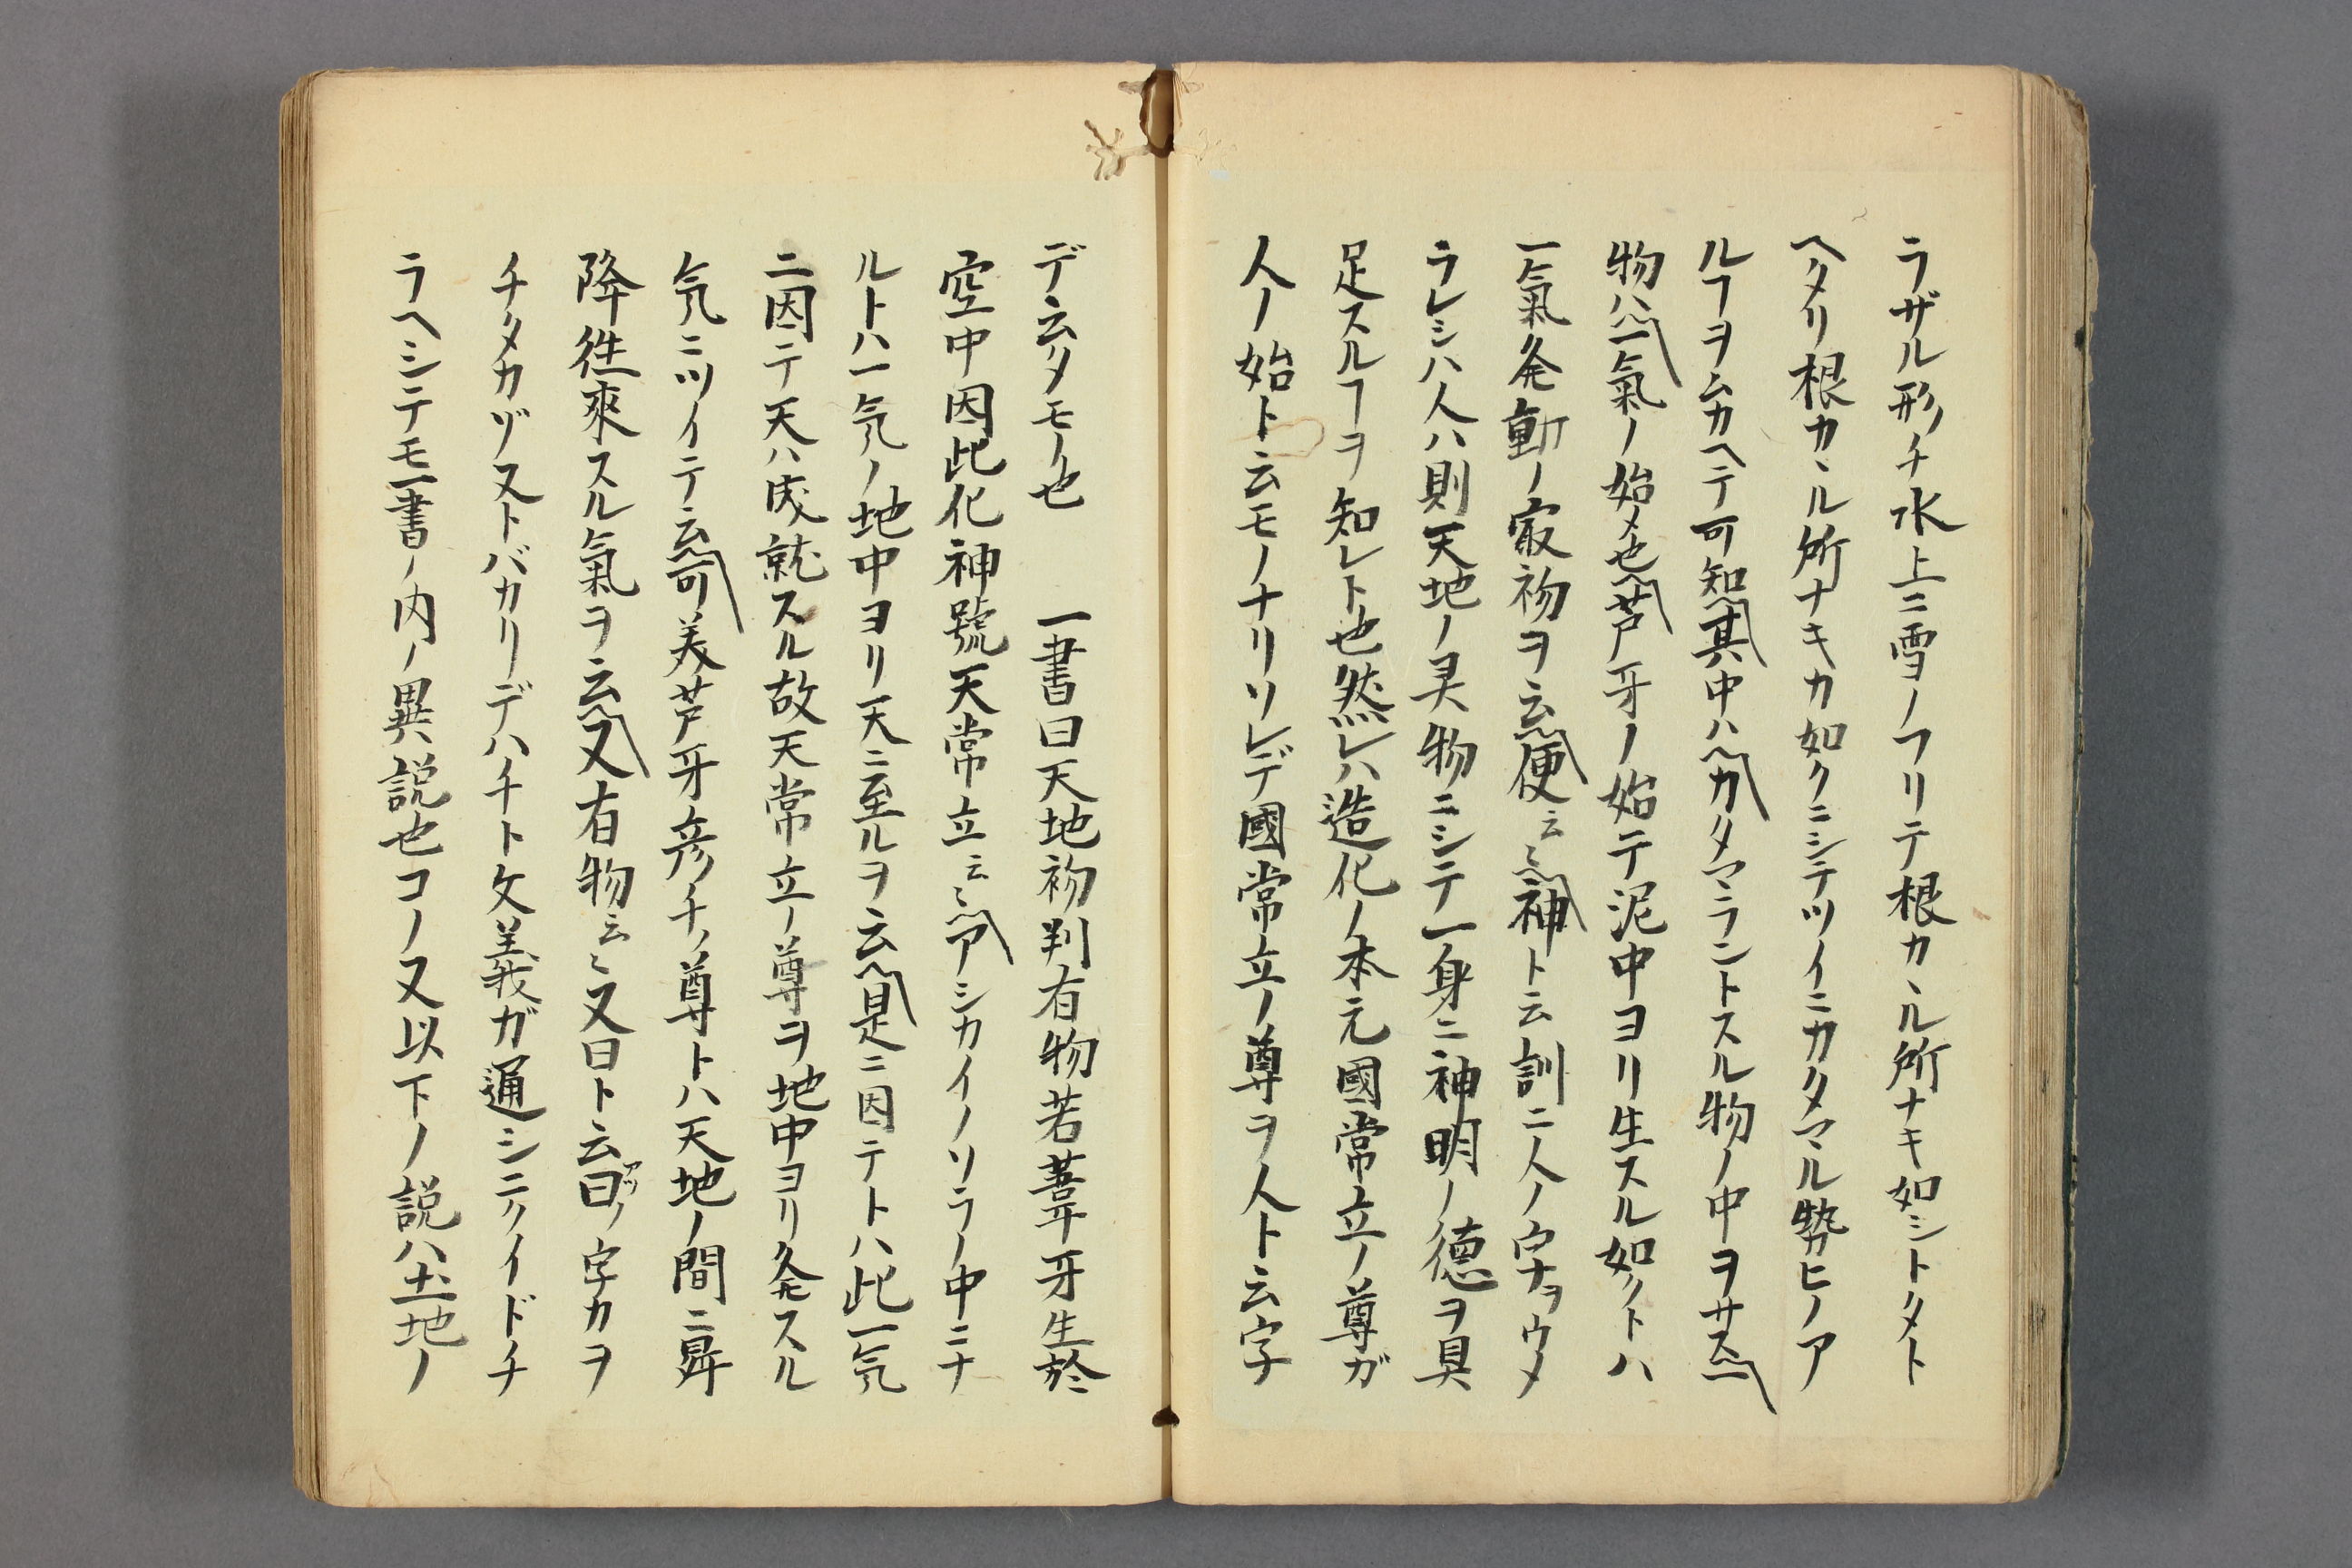 ラザル形チ水上ニ雪ノフリテ根カヽル所ナキ如シトタト
ヘタリ根カヽル所ナキカ如クニシテツイニカタマル勢ヒノア
ルヿヲムカヘテ可知〽其中ハ〽カタマラントスル物ノ中ヲサス〽一
物ハ〽一氣ノ始メ也〽芦牙ノ始テ泥中ヨリ生スル如クトハ
一氣発動ノ最初ヲ云〽便云〻〽神ト云訓ニ人ノ字ヲウメ
ラレシハ人ハ則天地ノ灵物ニシテ一身ニ神明ノ德ヲ具
足スルヿヲ知レト也然レハ造化ノ本元國常立ノ尊ガ
人ノ始ト云モノナリソレデ國常立ノ尊ヲ人ト云字
デ云タモノ也　一書曰天地初判有物若葦牙生於
空中因此化神號天常立云〻〽アシカイノソラノ中ニナ
ルトハ一気ノ地中ヨリ天ニ至ルヲ云〽是ニ因テトハ此一気
ニ因テ天ハ成就スル故天常立ノ尊ヲ地中ヨリ発スル
気ニツイテ云〽可美芦牙彦チノ尊トハ天地ノ間ニ昇
降徃來スル氣ヲ云〽又有物云〻又曰ト云曰ノ字カヲ
チタカヅヌトバカリデハチト文義ガ通シニクイドチ
ラヘシテモ一書ノ内ノ異説也コノ又以下ノ説ハ土地ノ